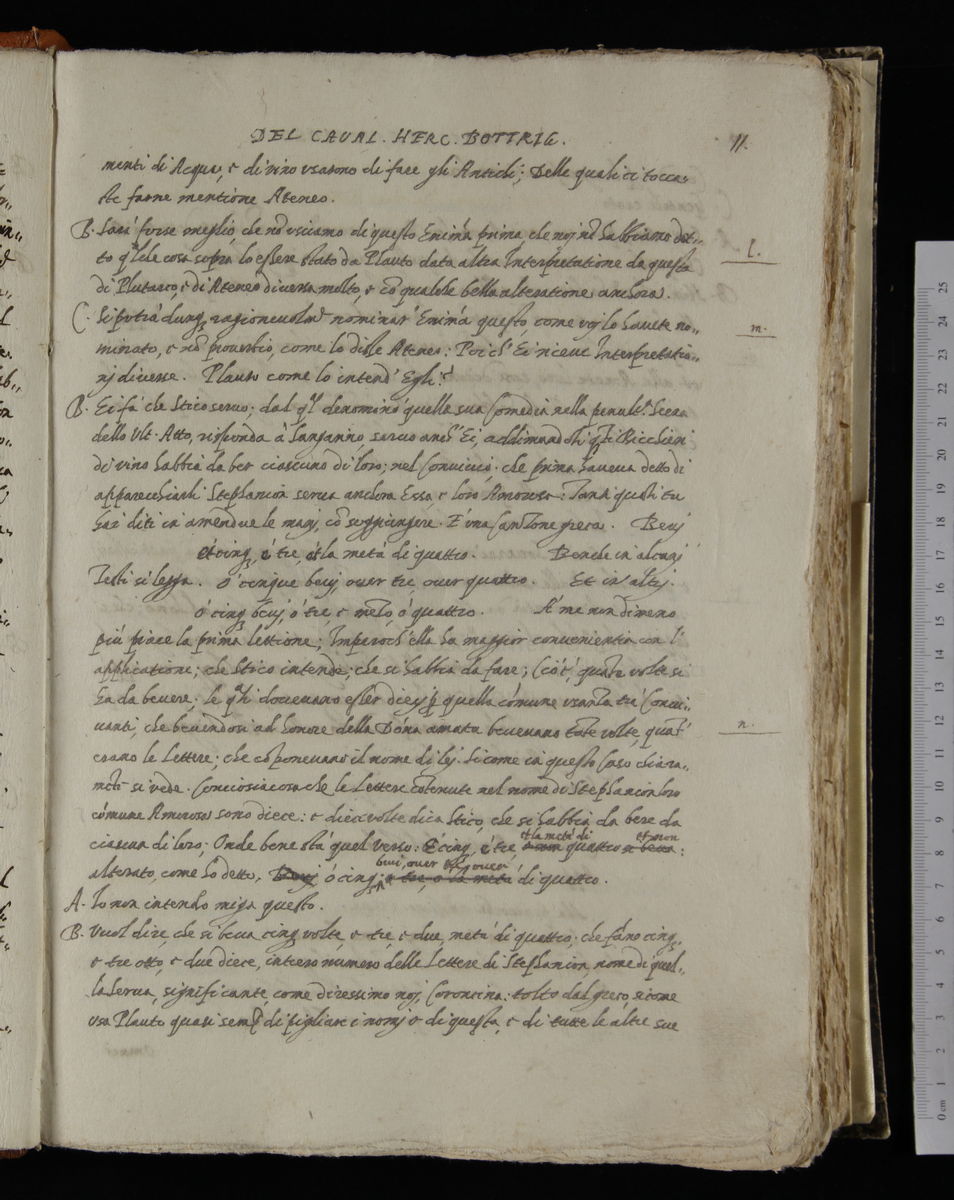 DEL CAVAL. HERC. BOTTRIG.
11.
menti di Acqua, e di vino usarono di fare gli Antichi; Delle quali ci tocca
farne mentione Ateneo.
B. Sarà forse meglio, che nõ usciamo di questo Enim̃a prima, che noj nõ habbiamo det-
to che cosa sopra lo essere stato da Plauto data altra Interpretatione da questa
di Plutarco, e di Ateneo diversa molto, e cõ qualche bella alteratione anchora.
l.
C. Si potrà dunq3 ragionevolmẽ nominar' Enim̃a questo, come voj lo havete no-
minato, e nõ proverbio, come lo disse Ateneo: Poich' Ei riceve Interpretatio-
nj diverse. Plauto come lo intend' Egli?
m.
B. Ei fà che Stico servo; dal denominò quella sua Comedia nella penult.ª Scena
dello Ult. Atto, risponda à Sangarino, servo anch' Ei, addimandoli Bicchieri
di vino habbia da ber ciascuno di loro; nel Convivio che prima haveva detto di
apparecchiarli Stephanion serva anchora Essa, e loro Amorosa: Tanti quali tu
hai diti in amendue le manj, cõ soggiungere. È una Canzone greca. Bevj
ò cinq3, ò tre, ò la metà di quattro. Benche in alcunj
Testi si legga. ò cinque bevj, over tre, over quattro. Et in altrj.
ò cinq3 bevj, ò tre, e mezo, ò quattro. A' me nondimeno
più piace la prima lettione; Imperoch' ella ha maggior convenienza con l'
applicatione, che Stico intende, che si habbia da fare; Cioè, quante volte si
ha da bevere; le dovevano esser diecj quella cõmune usanza trà Convi-
vanti, che bevendosi ad honore della Dõna amata bevevano tate volte, quat'
erano le Lettere, che cõponevano il nome di lej. Sicome in questo Caso chiara-
n.
mẽte si vede. Conciosiacosa che le Lettere cõtenute nel nome di Stephanion loro
cõmune Amorosa sono diece: e diece volte dica Stico, che si habbia da bere da
ciascun di loro; Onde bene stà quel verso: È cinq3, e tre et la metà di quattro et non
alterato, come hò detto, ò cinq3 bevi, over di quattro.
A. Io non intendo miga questo.
B. Vuol dire, che si beva cinq3 volte, e tre, e due, metà di quattro; che fãno cinq3,
e tre otto, e due diece, intero numero delle Lettere di Stephanion, nome di quel-
la serva, significante, come diressimo noj, Coroncina: tolto dal greco, sicome
usa Plauto quasi semp̃ di pigliare i nomj e di questa, e di tutte le altre sue